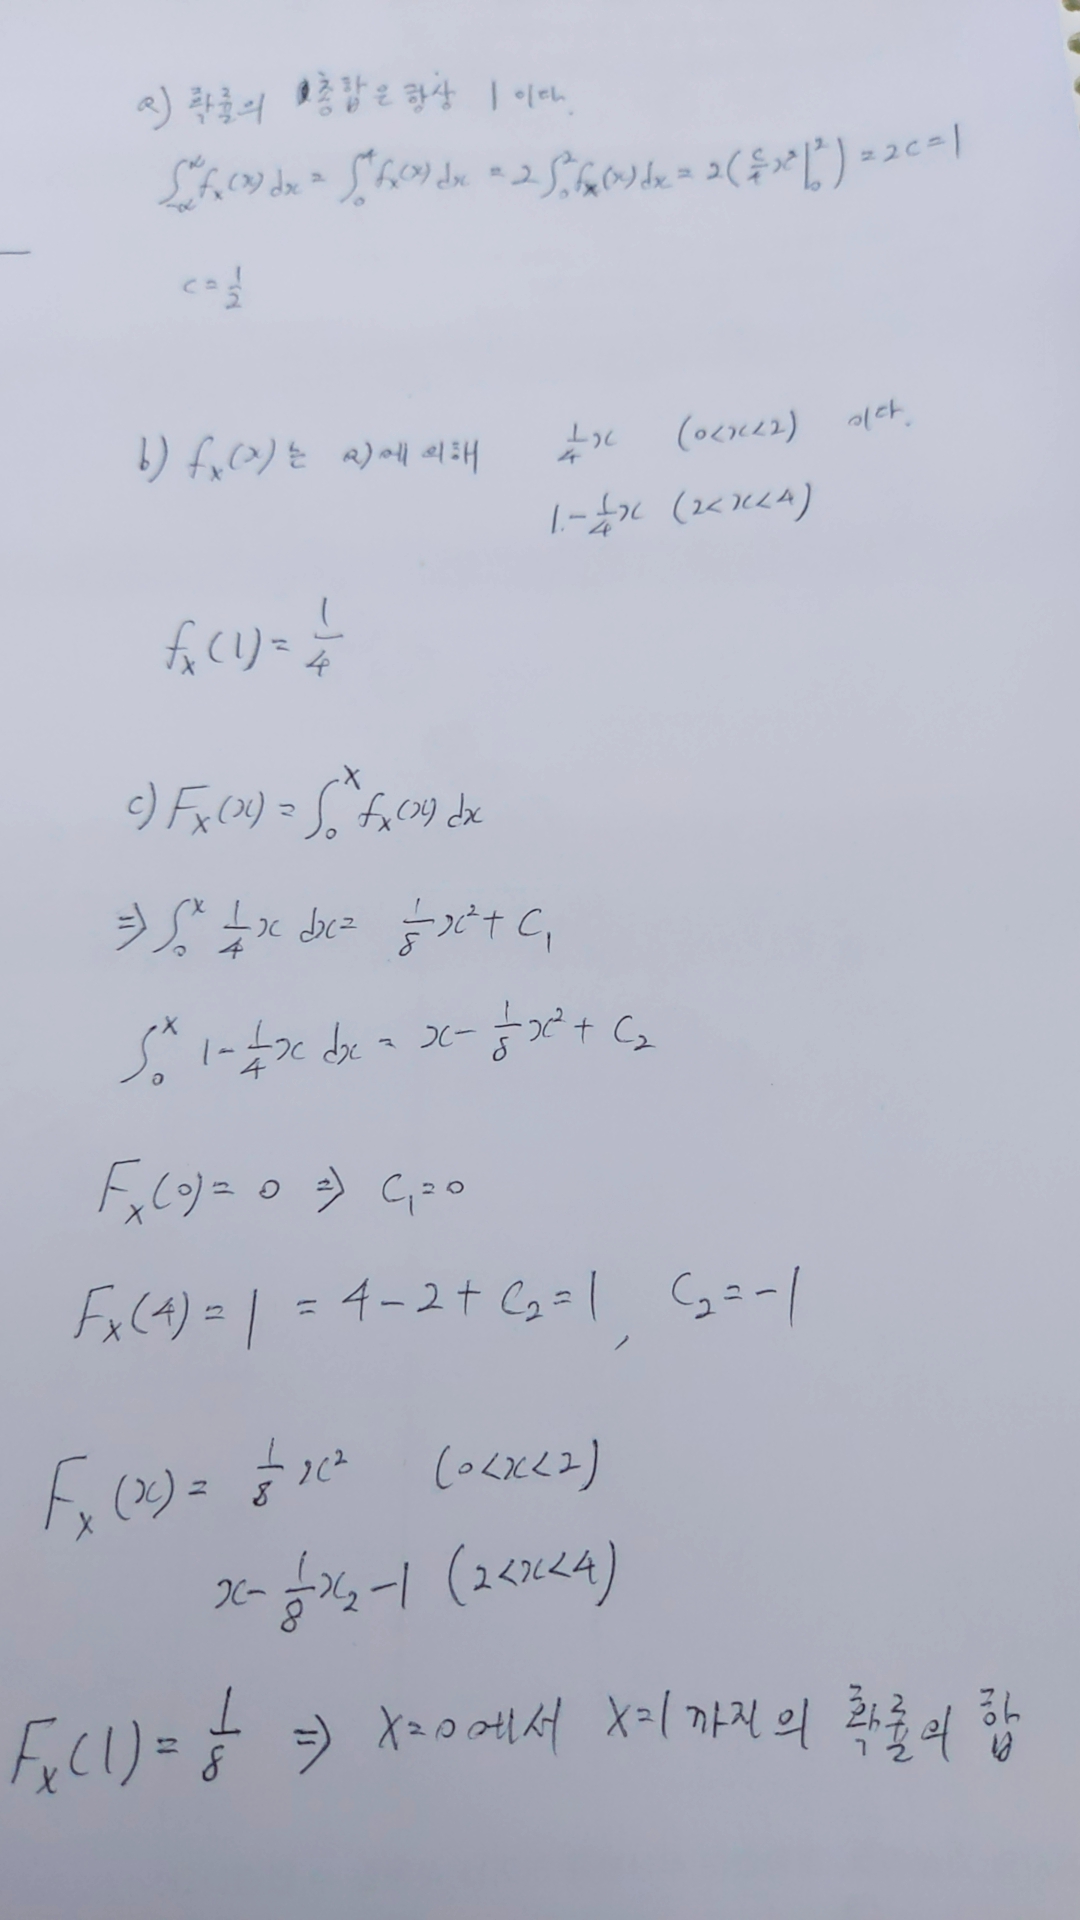 a) 확률의 총합은 항상 1 이다.
∫_{-∞}^{∞} fₓ(x) dx = ∫₀⁴ fₓ(x) dx = 2∫₀² fₓ(x) dx = 2(c/4 x² |₀²) = 2c = 1
c = 1/2
b) fₓ(x)는 a)에 의해 1/4 x (0<x<2) 이다.
1 - 1/4 x (2<x<4)
fₓ(1) = 1/4
c) Fₓ(x) = ∫₀ˣ fₓ(x) dx
⇒ ∫₀ˣ 1/4 x dx = 1/8 x² + C₁
∫₀ˣ 1 - 1/4 x dx = x - 1/8 x² + C₂
Fₓ(0) = 0 ⇒ C₁ = 0
Fₓ(4) = 1 = 4 - 2 + C₂ = 1, C₂ = -1
Fₓ(x) = 1/8 x² (0<x<2)
x - 1/8 x₂ - 1 (2<x<4)
Fₓ(1) = 1/8 ⇒ X=0에서 X=1까지의 확률의 합